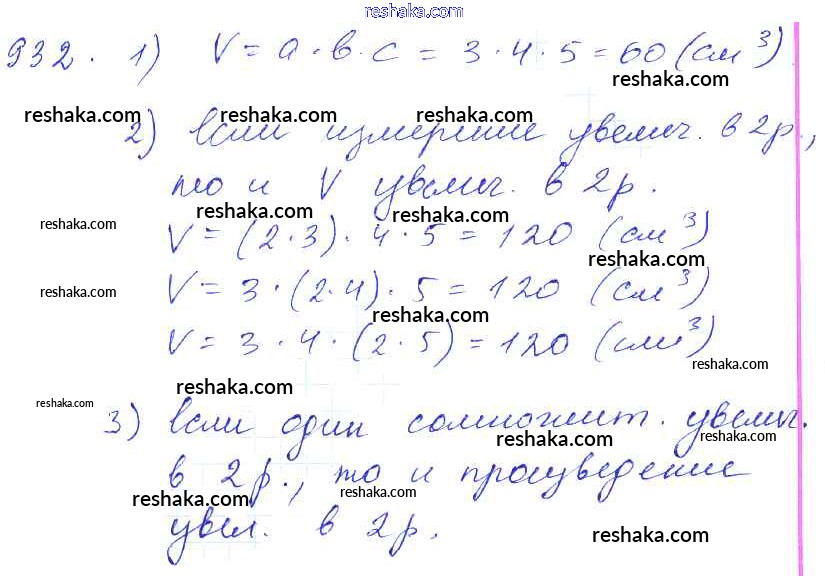 reshaka.com
932. 1) V = a · b · c = 3 · 4 · 5 = 60 (см³)
reshaka.com
reshaka.com reshaka.com reshaka.com
2) если измерение увелич. в 2 р.,
то и V увелич. в 2 р.
reshaka.com reshaka.com reshaka.com
V = (2 · 3) · 4 · 5 = 120 (см³)
reshaka.com
V = 3 · (2 · 4) · 5 = 120 (см³)
reshaka.com reshaka.com
V = 3 · 4 · (2 · 5) = 120 (см³)
reshaka.com
reshaka.com
reshaka.com
3) если один сомножит. увелич.
reshaka.com reshaka.com
в 2 р., то и произведение
reshaka.com reshaka.com
увел. в 2 р.
reshaka.com